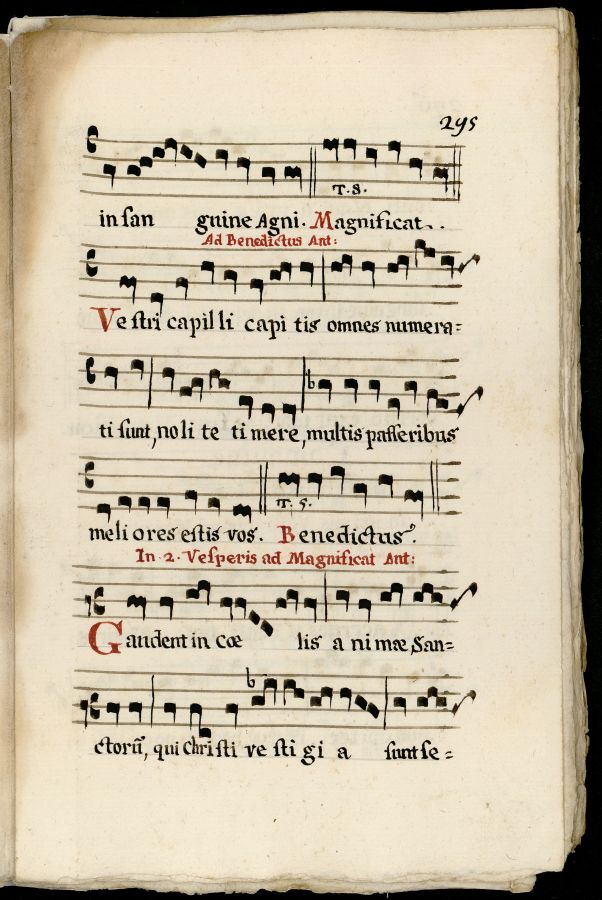 295
T. 8.
in san guine Agni. Magnificat.
Ad Benedictus Ant:
Vestri capilli capi tis omnes numera=
ti sunt, noli te timere, multis passeribus
T. 5.
meliores estis vos. Benedictus.
In 2. Vesperis ad Magnificat Ant:
Gaudent in cœ lis a ni mæ San=
ctorũ, qui Christi ve sti gi a sunt se=